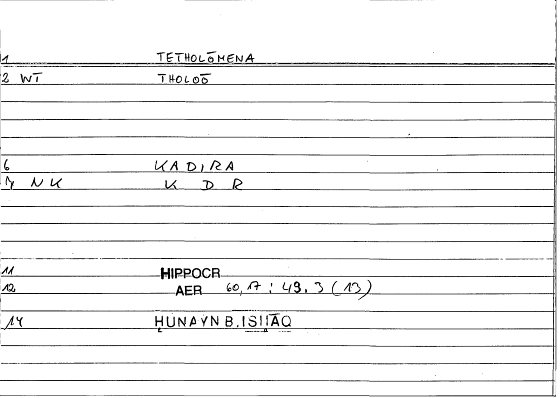 1 TETHOLŌMENA
2 WT THOLOŌ
6 KADIRA
7 NK K D R
11 HIPPOCR
12 AER 60,17 : 49.3 (13)
14 ḤUNAYN B. ISḤĀQ